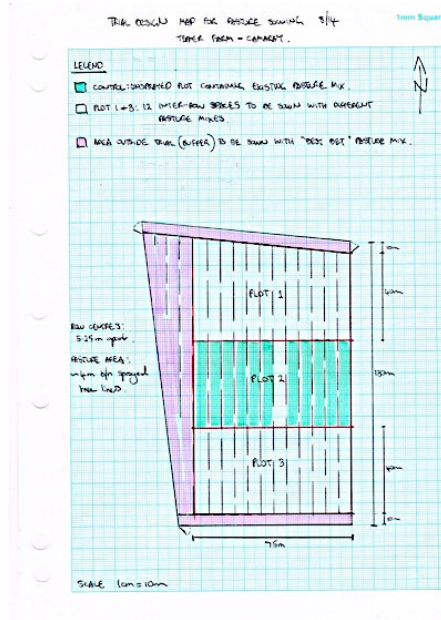 TRIAL DESIGN MAP FOR PASTURE SOWING 8/14
TEMER FARM - CAMARAY.
1mm Squar
LEGEND
CONTROL: UNSPRAYED PLOT CONTAINING EXISTING PASTURE MIX.
PLOT 1 + 3: 12 INTER-ROW SPACES TO BE SOWN WITH DIFFERENT
PASTURE MIXES.
AREA OUTSIDE TRIAL (BUFFER) TO BE SOWN WITH "BEST BET" PASTURE MIX.
N
PLOT 1
40m
ROW CENTRES:
5.25m apart.
PASTURE AREA:
~4m b/n sprayed
tree lines.
PLOT 2
PLOT 3
40m
75m
SCALE 1cm = 10m